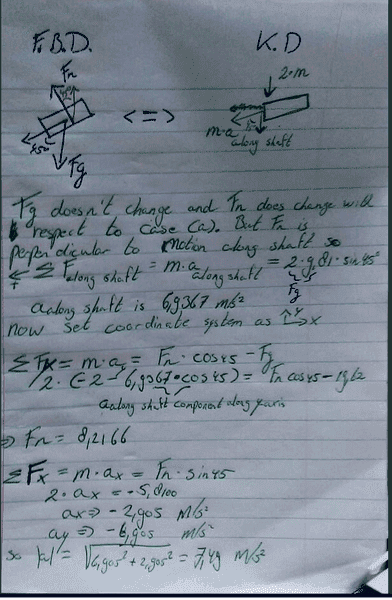 F.B.D. K.D
Fn 2·m
45° <=>
45° m·a along shaft
Fg
Fg doesn't change and Fn does change with
respect to case (a). But Fn is
perpendicular to motion along shaft so
← + ΣF along shaft = m·a along shaft = 2·9,81·sin45°
Fg
a along shaft is 6,9367 m/s²
now set coordinate system as ↑y →x
ΣFx = m·ay = Fn·cos45 - Fg
2·(-2-6,9367·cos45) = Fn cos45 - 19,62
a along shaft component along y axis
=> Fn = 8,2166
ΣFx = m·ax = Fn·sin45
2·ax = -5,8100
ax => -2,905 m/s²
ay => -6,905 m/s²
so |a| = √6,905² + 2,905² = 7,49 m/s²